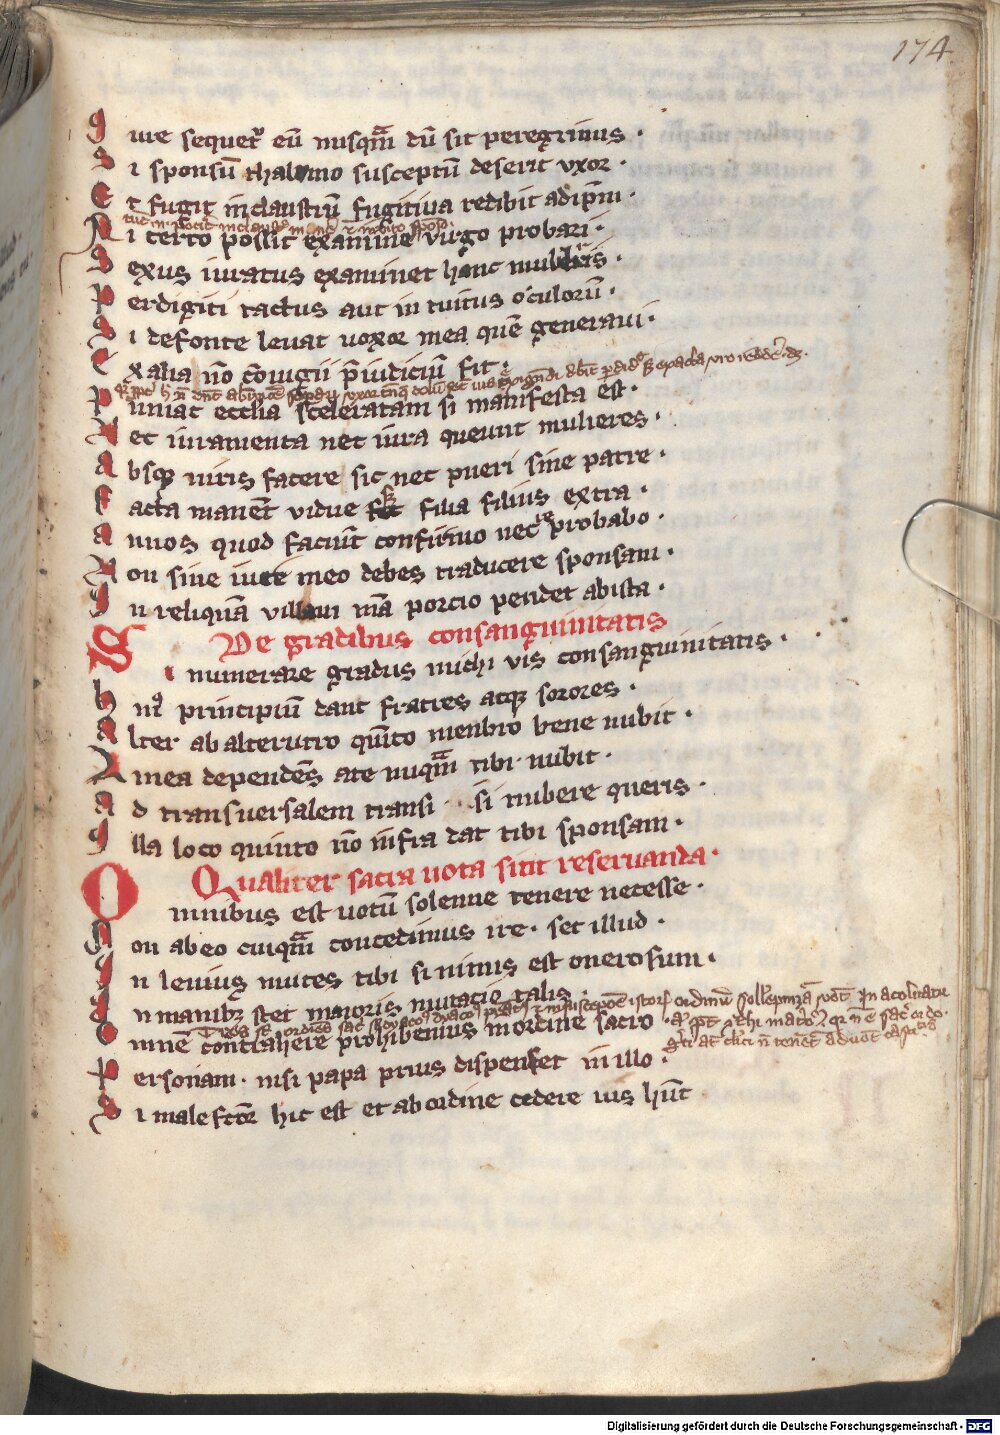 174.
Iure sequet᷑ eū nusqͫ dū sit peregrinus ·
Si sponsū thalamo susceptū deserit vxor ·
Et fugit in claustrū fugitiua redibit ad ip̄m ·
Ni certo possit examine virgo probari ·
Sexus iuratus examinet hanc mulieris ·
Perdigiti tactus aut in tuitus oculorū ·
Si defonte leuat uoxor mea quē generaui ·
Ex alia nō cōiugii p̄iudiciū fit ·
Puniat ecclīa sceleratam si manifesta est ·
Nec iuramenta nec iura queunt mulieres ·
Absqꝫ uiris facere sic nec pueri sine patre ·
Facta manēt vidue filia filius extra ·
Annos quod faciūt confirmo nec probabo ·
Non sine iure meo debes traducere sponsam ·
In reliquā villam mā porcio pendet abista ·
De gradibus consanguinitatis
Si numerare gradus michi vis consanguinitatis ·
Hinꝰ principiū dant fratres atqꝫ sorores ·
Alter ab alterutro quīto menbro bene nubit ·
Linea dependēs ate nuqͫ tibi nubit ·
Ad transuersalem transi si nubere queris ·
Illa loco quinto nō infra dat tibi sponsam ·
Qualiter sacra uota sint reseruanda ·
Omnibus est uotū solenne tenere necesse ·
Non ab eo cuiqͫ concedimus ire · set illud ·
In leuius mutes tibi si nimis est onerosum ·
In manibꝫ stet maioris mutacio talis ·
Omnē contrahere prohibemus in ordine sacro ·
Personam · nisi papa prius dispenset in illo ·
Si male fctōr hic est et ab ordine cedere uis hūt
Digitalisierung gefördert durch die Deutsche Forschungsgemeinschaft - DFG